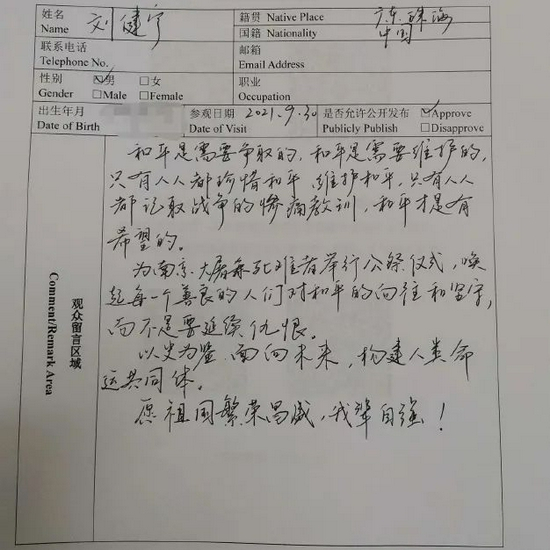 姓名 刘健宁 籍贯 Native Place 广东珠海
Name 国籍 Nationality 中国
联系电话 邮箱
Telephone No. Email Address
性别 ☑男 □女 职业
Gender □Male □Female Occupation
出生年月 参观日期 2021.9.30 是否允许公开发布 ☑Approve
Date of Birth Date of Visit Publicly Publish □Disapprove
观众留言区域
Comment/Remark Area
和平是需要争取的，和平是需要维护的，
只有人人都珍惜和平、维护和平，只有人人
都记取战争的惨痛教训，和平才是有
希望的。
为南京大屠杀死难者举行公祭仪式，唤
起每一个善良的人们对和平的向往和坚守，
而不是要延续仇恨。
以史为鉴，面向未来，构建人类命
运共同体。
愿祖国繁荣昌盛，我辈自强！